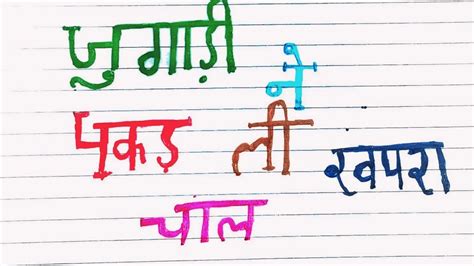 जुगाड़ी ने
पकड ली खपरा
चाल